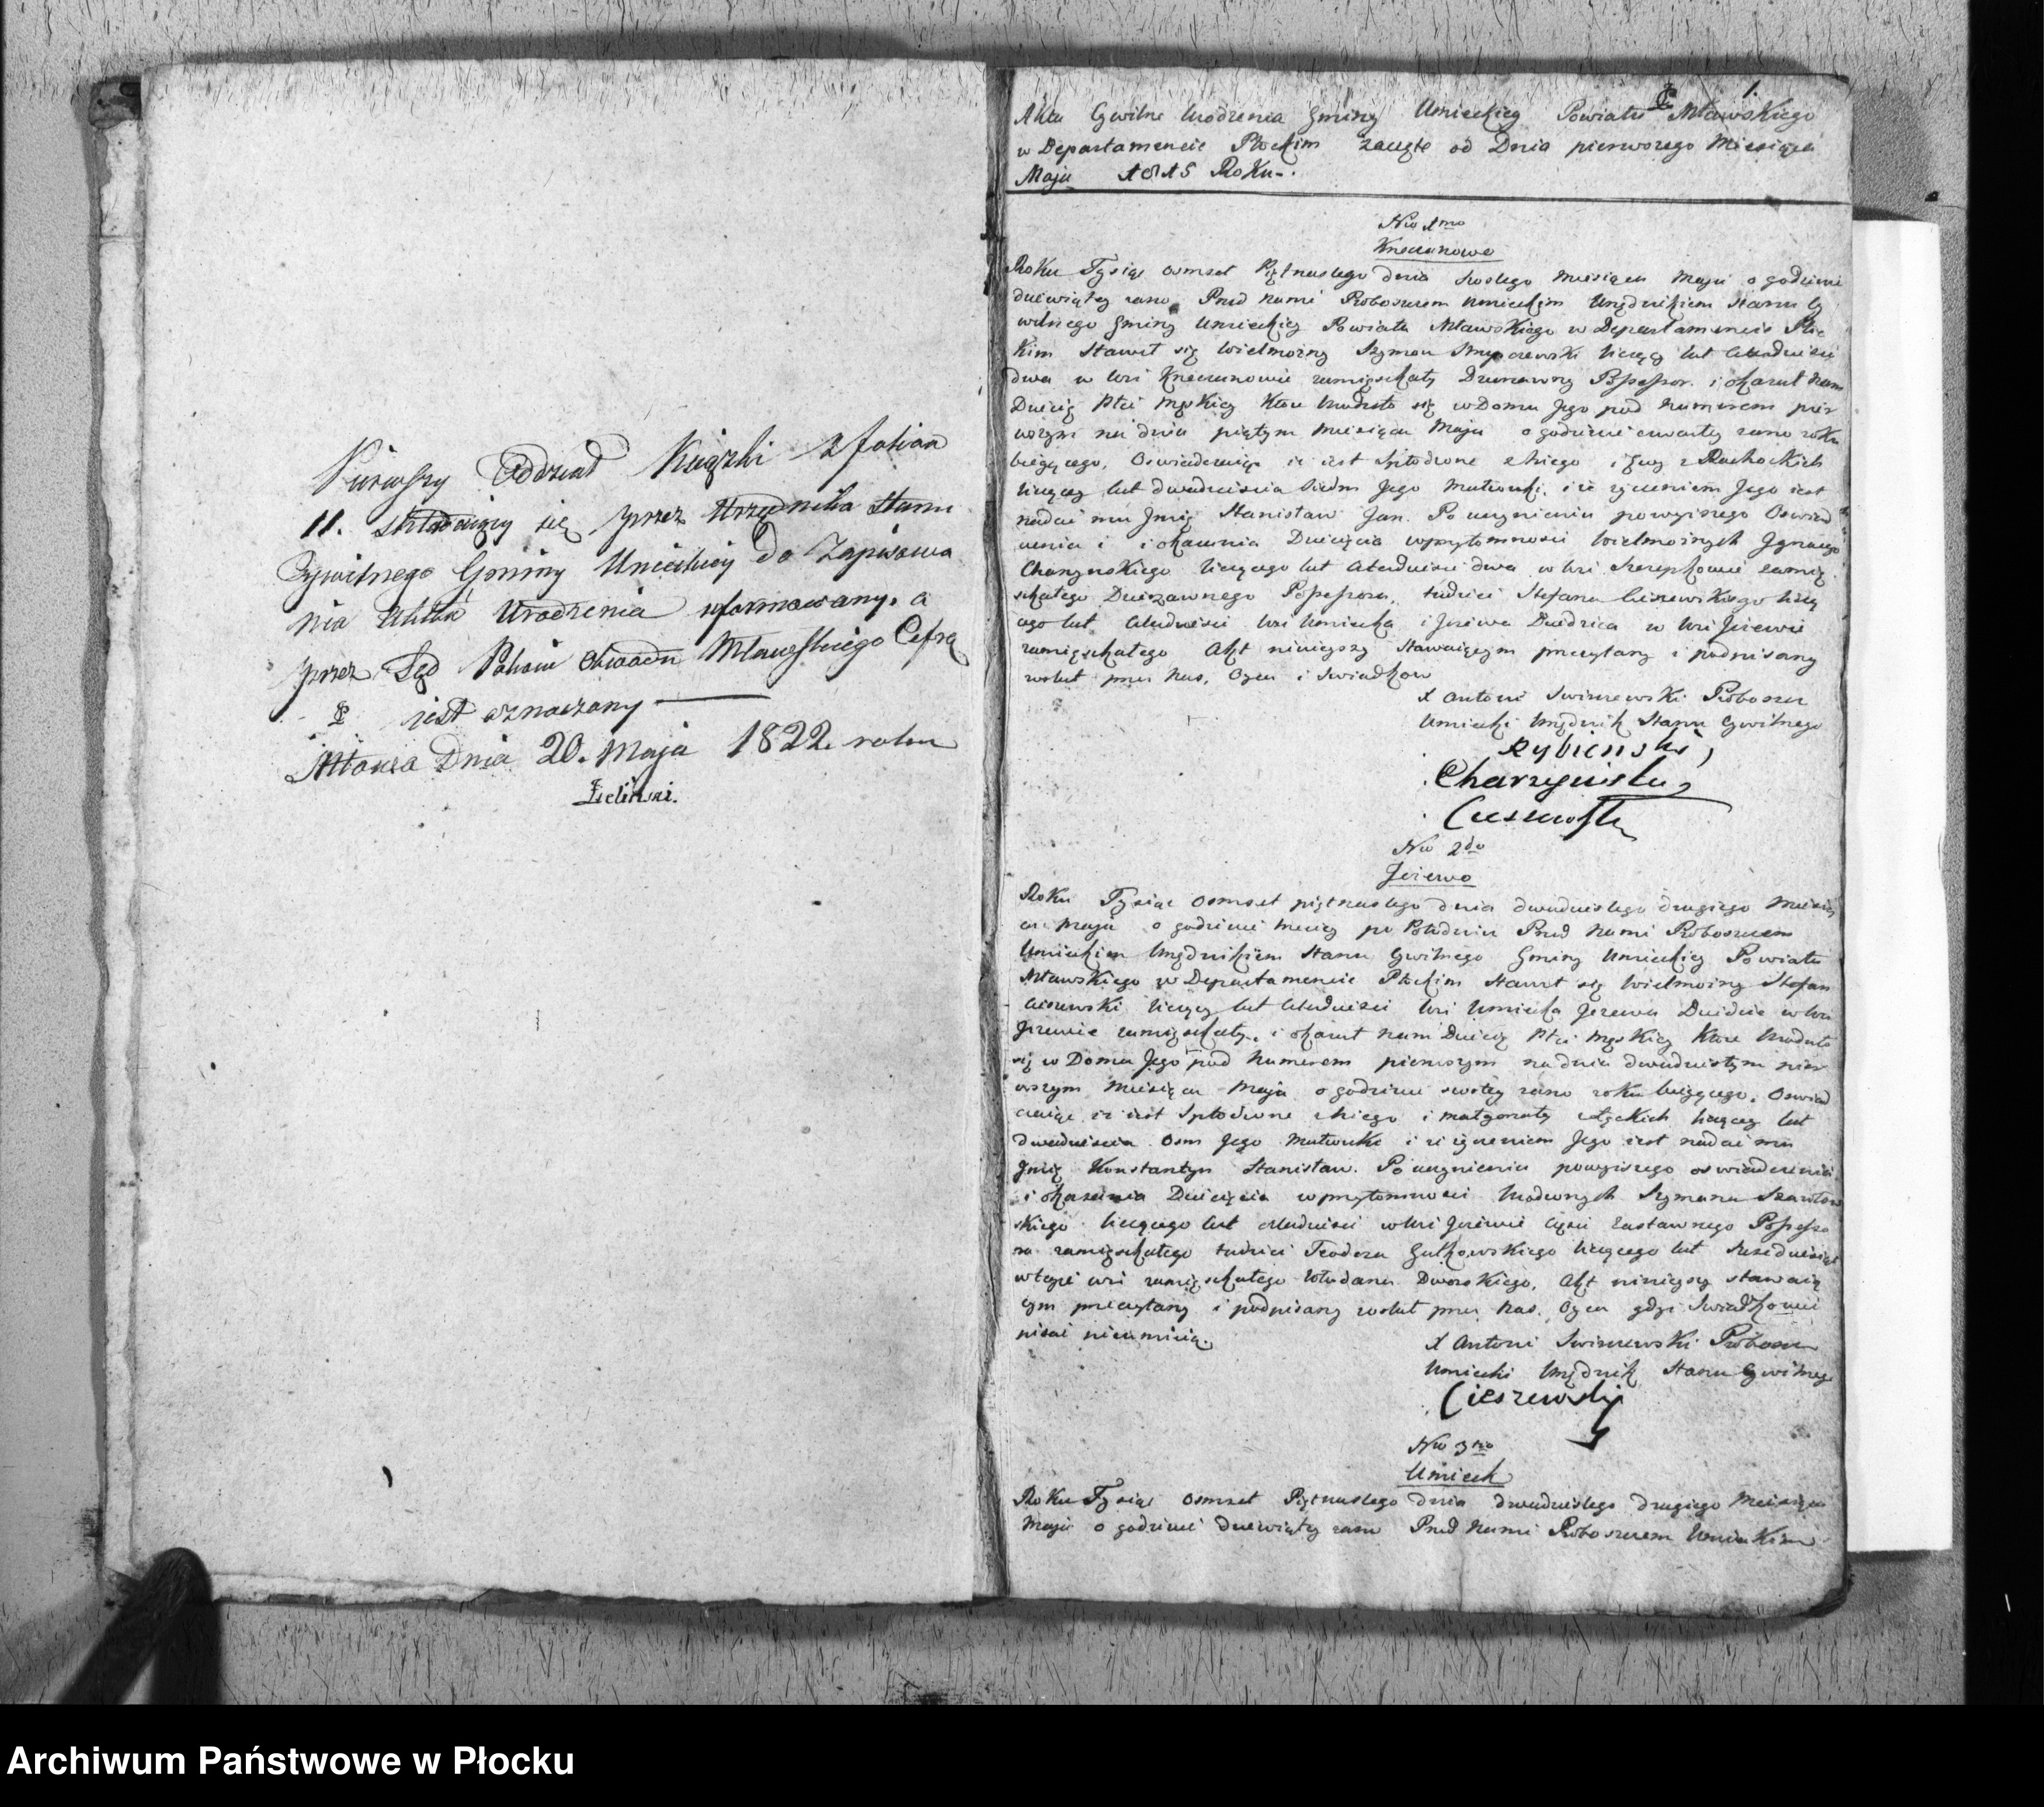 Pierwszy Oddział Książki z folian
11. składaiący się przez Urzędnika Stanu
Cywilnego Gminy Unieckiey do Zapisowa
nia Aktów Urodzenia uformowany, a
przez Sąd Pokoiu Obwodu Mławskiego Cyfrą
iest oznaczony
Mława Dnia 20. Maja 1822. roku
Zieliński.
1.
Akta Cywilne Urodzenia Gminy Unieckiey Powiatu Mławskiego
w Departamencie Płockim zaczęte od Dnia pierwszego Miesiąca
Maja 1815 Roku.
Nro 1mo
Roku Tysiąc osmset Piętnastego dnia szostego Miesiąca Maja o godzinie
dziewiątey rano Przed Nami Proboszczem Unieckim Urzędnikiem Stanu Cy
wilnego Gminy Unieckiey Powiatu Mławskiego w Departamencie Płoc
kim Stawił się Wielmożny Szymon liczący lat czterdzieści
dwa w wsi zamięszkały Dzierzawny Possessor. i okazał Nam
Dziecię Płci Męskiey Ktore Urodziło się w Domu Jego pod Numerem pier
wszym na dniu piątym Miesiąca Maja o godzinie czwartey rano roku
bieżącego, Oswiadczaiąc iż iest Spłodzone z Niego i Ewy z Ruchockich
liczącey lat dwadziescia siedm Jego Małżonki, i iż życzeniem Jego iest
nadać mu Jmię Stanisław Jan. Po uczynieniu powyższego Oswiad
czenia i okazania Dziecięcia w przytomności Wielmożnych Jgnacego
Charzynskiego liczącego lat czterdzieści dwa w wsi zamię
szkałego Dzierzawnego Possessora, tudzież Stefana Cieszewskiego liczą
cego lat czterdzieści wsi Uniecka i Jeżewa Dziedzica w wsi Jeżewie
zamięszkałego Akt ninieyszy Stawaiącym przeczytany i podpisany
został przez Nas, Oyca i Swiadkow
X Antoni Swiszewski Proboszcz
Uniecki Urzędnik Stanu Cywilnego
Charzynski
Cieszewski
Nro 2do
Jeżewo
Roku Tysiąc Osmset piętnastego dnia dwudziestego drugiego Miesią
ca Maja o godzinie trzeciey po Południu Przed Nami Proboszczem
Unieckim Urzędnikiem Stanu Cywilnego Gminy Unieckiey Powiatu
Mławskiego w Departamencie Płockim Stawił się Wielmożny Stefan
Cieszewski liczący lat czterdzieści wsi Uniecka Jeżewa Dziedzic w wsi
Jeżewie zamięszkały, i okazał Nam Dziecię Płci Męskiey Ktore Urodziło
się w Domu Jego pod Numerem pierwszym na dniu dwudziestym pier
wszym Miesiąca Maja o godzinie szostey rano roku bieżącego, Oswiad
czaiąc iż iest Spłodzone z Niego i Małgorzaty liczącey lat
dwadziescia osm Jego Małżonki i iż życzeniem Jego iest nadać mu
Jmię Konstantyn Stanisław. Po uczynieniu powyższego oswiadczenia
i okazania Dziecięcia w przytomności Urodzonych Szymona
skiego liczącego lat czterdzieści w wsi Jeżewie części zastawnego Possesso
ra zamięszkałego tudzież Teodora Gutkowskiego liczącego lat szescdziesiąt
w teyże wsi zamięszkałego Włodarza Dworskiego, Akt ninieyszy stawaią
cym przeczytany i podpisany został przez Nas, Oyca gdyż Swiadkowie
pisać nieumieią.
X Antoni Swiszewski Proboszcz
Uniecki Urzędnik Stanu Cywilnego
Cieszewski
Nro 3tio
Unieck
Roku Tysiąc Osmset Piętnastego dnia dwudziestego drugiego Miesiąca
Maja o godzinie dziewiątey rano Przed Nami Proboszczem Unieckim
Archiwum Państwowe w Płocku